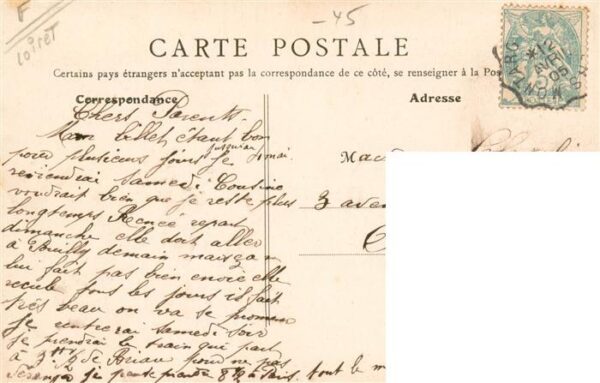 F
Loiret
-45
CARTE POSTALE
Certains pays étrangers n'acceptant pas la correspondance de ce côté, se renseigner à la Pos
Correspondance
Adresse
Chers Parents.
Mon billet étant bon
pour plusieurs jours jusqu'au 4 mai
je
reviendrai samedi. Cousine
voudrait bien que je reste plus
longtemps Renée repart
dimanche elle doit aller
à demain mais ça
lui fait pas bien envie elle
recule tous les jours il fait
très beau on va se promen
je rentrerai samedi soir
je prendrai le train qui part
à 3h ½ de Briare pour ne pas
je serai 8h ½ à Paris. tout le m
Mad
3 aven